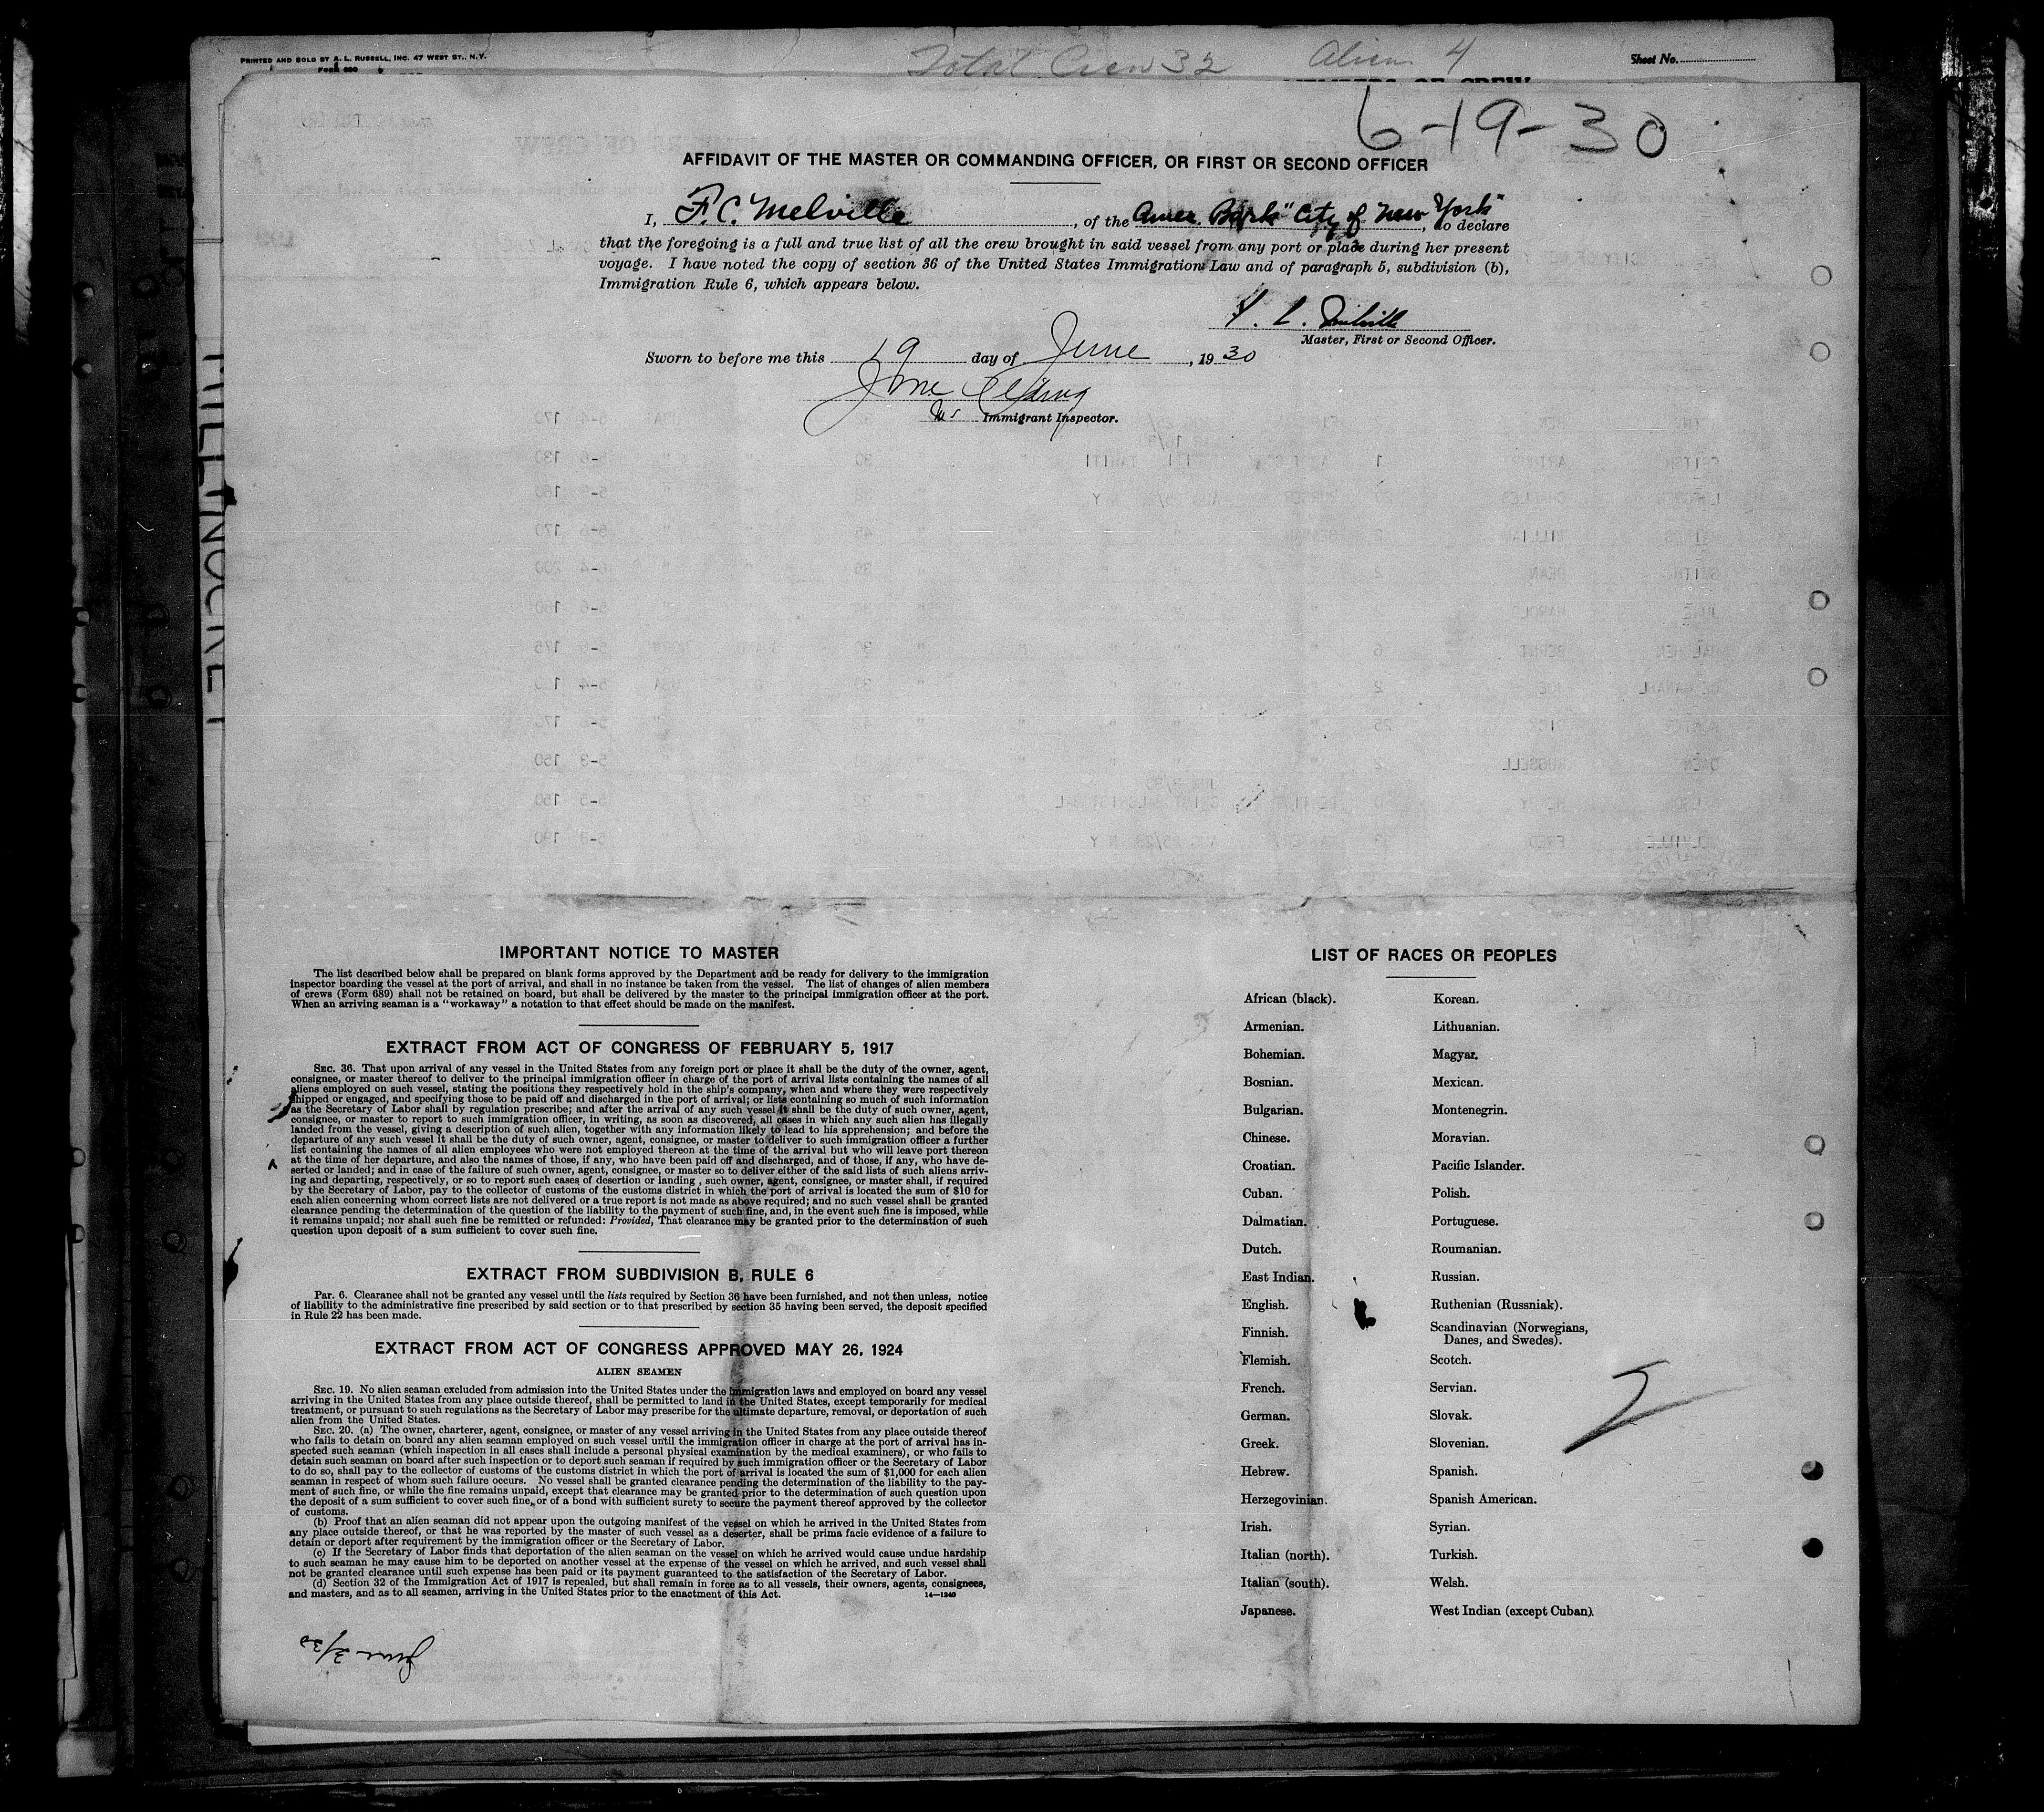 PRINTED AND SOLD BY A. L. RUSSELL, INC. 47 WEST ST., N.Y.
FORM 680
Total Crew 32 Alien 4
Sheet No.
MEMBERS OF CREW
6-19-30
AFFIDAVIT OF THE MASTER OR COMMANDING OFFICER, OR FIRST OR SECOND OFFICER
I, F. C. Melville, of the Amer. Bark "City of New York", do declare
that the foregoing is a full and true list of all the crew brought in said vessel from any port or place during her present
voyage. I have noted the copy of section 36 of the United States Immigration Law and of paragraph 5, subdivision (b),
Immigration Rule 6, which appears below.
F. C. Melville
Master, First or Second Officer.
Sworn to before me this 19 day of June, 1930
Immigrant Inspector.
IMPORTANT NOTICE TO MASTER
The list described below shall be prepared on blank forms approved by the Department and be ready for delivery to the immigration
inspector boarding the vessel at the port of arrival, and shall in no instance be taken from the vessel. The list of changes of alien members
of crews (Form 689) shall not be retained on board, but shall be delivered by the master to the principal immigration officer at the port.
When an arriving seaman is a "workaway" a notation to that effect should be made on the manifest.
EXTRACT FROM ACT OF CONGRESS OF FEBRUARY 5, 1917
SEC. 36. That upon arrival of any vessel in the United States from any foreign port or place it shall be the duty of the owner, agent,
consignee, or master thereof to deliver to the principal immigration officer in charge of the port of arrival lists containing the names of all
aliens employed on such vessel, stating the positions they respectively hold in the ship's company, when and where they were respectively
shipped or engaged, and specifying those to be paid off and discharged in the port of arrival; or lists containing so much of such information
as the Secretary of Labor shall by regulation prescribe; and after the arrival of any such vessel it shall be the duty of such owner, agent,
consignee, or master to report to such immigration officer, in writing, as soon as discovered, all cases in which any such alien has illegally
landed from the vessel, giving a description of such alien, together with any information likely to lead to his apprehension; and before the
departure of any such vessel it shall be the duty of such owner, agent, consignee, or master to deliver to such immigration officer a further
list containing the names of all alien employees who were not employed thereon at the time of the arrival but who will leave port thereon
at the time of her departure, and also the names of those, if any, who have been paid off and discharged, and of those, if any, who have de-
serted or landed; and in case of the failure of such owner, agent, consignee, or master so to deliver either of the said lists of such aliens arriv-
ing and departing, respectively, or so to report such cases of desertion or landing , such owner, agent, consignee, or master shall, if required
by the Secretary of Labor, pay to the collector of customs of the customs district in which the port of arrival is located the sum of $10 for
each alien concerning whom correct lists are not delivered or a true report is not made as above required; and no such vessel shall be granted
clearance pending the determination of the question of the liability to the payment of such fine, and, in the event such fine is imposed, while
it remains unpaid; nor shall such fine be remitted or refunded: Provided, That clearance may be granted prior to the determination of such
question upon deposit of a sum sufficient to cover such fine.
EXTRACT FROM SUBDIVISION B, RULE 6
Par. 6. Clearance shall not be granted any vessel until the lists required by Section 36 have been furnished, and not then unless, notice
of liability to the administrative fine prescribed by said section or to that prescribed by section 35 having been served, the deposit specified
in Rule 22 has been made.
EXTRACT FROM ACT OF CONGRESS APPROVED MAY 26, 1924
ALIEN SEAMEN
SEC. 19. No alien seaman excluded from admission into the United States under the immigration laws and employed on board any vessel
arriving in the United States from any place outside thereof, shall be permitted to land in the United States, except temporarily for medical
treatment, or pursuant to such regulations as the Secretary of Labor may prescribe for the ultimate departure, removal, or deportation of such
alien from the United States.
SEC. 20. (a) The owner, charterer, agent, consignee, or master of any vessel arriving in the United States from any place outside thereof
who fails to detain on board any alien seaman employed on such vessel until the immigration officer in charge at the port of arrival has in-
spected such seaman (which inspection in all cases shall include a personal physical examination by the medical examiners), or who fails to
detain such seaman on board after such inspection or to deport such seaman if required by such immigration officer or the Secretary of Labor
to do so, shall pay to the collector of customs of the customs district in which the port of arrival is located the sum of $1,000 for each alien
seaman in respect of whom such failure occurs. No vessel shall be granted clearance pending the determination of the liability to the pay-
ment of such fine, or while the fine remains unpaid, except that clearance may be granted prior to the determination of such question upon
the deposit of a sum sufficient to cover such fine, or of a bond with sufficient surety to secure the payment thereof approved by the collector
of customs.
(b) Proof that an alien seaman did not appear upon the outgoing manifest of the vessel on which he arrived in the United States from
any place outside thereof, or that he was reported by the master of such vessel as a deserter, shall be prima facie evidence of a failure to
detain or deport after requirement by the immigration officer or the Secretary of Labor.
(c) If the Secretary of Labor finds that deportation of the alien seaman on the vessel on which he arrived would cause undue hardship
to such seaman he may cause him to be deported on another vessel at the expense of the vessel on which he arrived, and such vessel shall
not be granted clearance until such expense has been paid or its payment guaranteed to the satisfaction of the Secretary of Labor.
(d) Section 32 of the Immigration Act of 1917 is repealed, but shall remain in force as to all vessels, their owners, agents, consignees,
and masters, and as to all seamen, arriving in the United States prior to the enactment of this Act.
14—1240
June 3/30
LIST OF RACES OR PEOPLES
African (black).
Armenian.
Bohemian.
Bosnian.
Bulgarian.
Chinese.
Croatian.
Cuban.
Dalmatian.
Dutch.
East Indian.
English.
Finnish.
Flemish.
French.
German.
Greek.
Hebrew.
Herzegovinian.
Irish.
Italian (north).
Italian (south).
Japanese.
Korean.
Lithuanian.
Magyar.
Mexican.
Montenegrin.
Moravian.
Pacific Islander.
Polish.
Portuguese.
Roumanian.
Russian.
Ruthenian (Russniak).
Scandinavian (Norwegians,
Danes, and Swedes).
Scotch.
Servian.
Slovak.
Slovenian.
Spanish.
Spanish American.
Syrian.
Turkish.
Welsh.
West Indian (except Cuban).